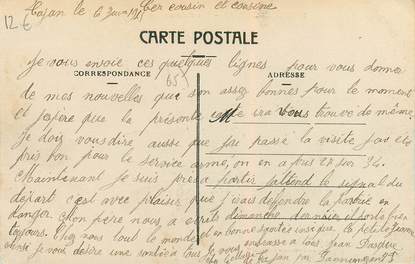 Cajan le 6 Juin 19 Cher cousin et cousine
12 €
CARTE POSTALE
Je vous envoie ces quelques lignes pour vous donner
CORRESPONDANCE ADRESSE
65
de mes nouvelles qui son assez bonnes pour le moment
et j'espère que la présente vous trouve de même
Je dois vous dire aussi que j'ai passé la visite j'ai été
pris bon pour le service armé, on en a pris 24 sur 34.
Maintenant je suis près à partir j'attend le signal du
départ c'est avec plaisir que j'irais défendre la patrie en
danger. Mon père nous a écrits dimanche dernier il porte bien
toujours. Chez nous tout le monde est en bonne santée ainsi que le petit jeune
ainsi je vous désire une santée à tous Je vous embrasse à tous Jean